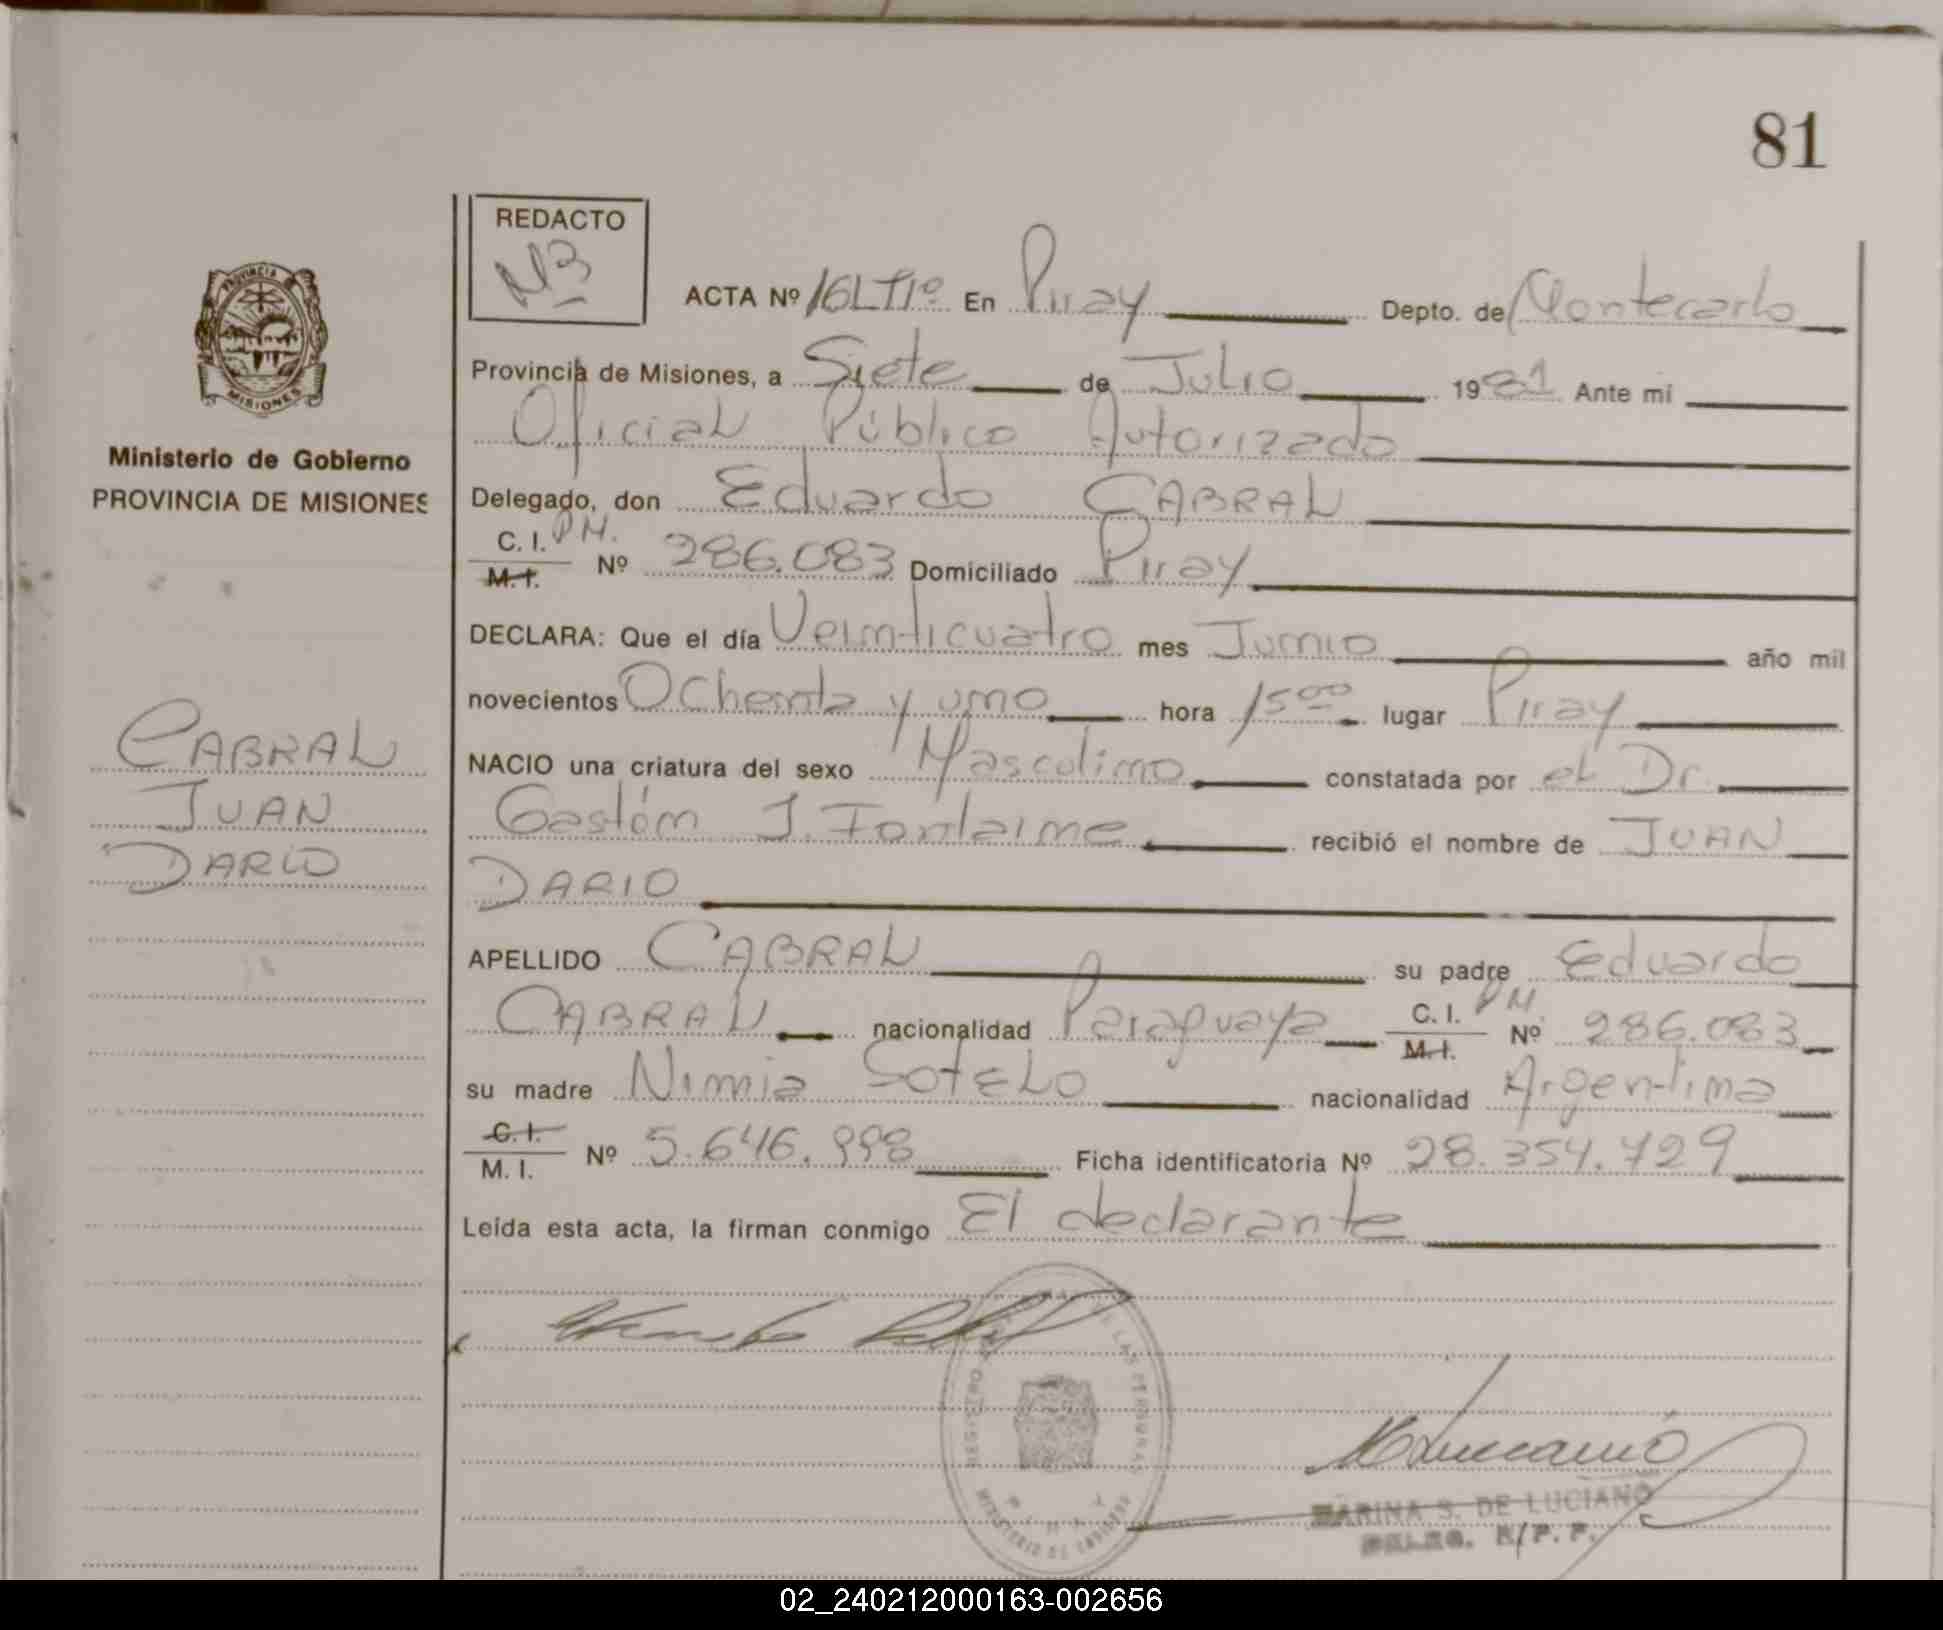 81
REDACTO
Nº3
ACTA Nº 16LTIº En Piray Depto. de Montecarlo
Provincia de Misiones, a Siete de Julio 1981 Ante mi
Oficial Público Autorizado
Delegado, don Eduardo CABRAL
C. I. PM.
M. I. Nº 286.083 Domiciliado Piray
DECLARA: Que el día Veinticuatro mes Junio año mil
novecientos Ochenta y uno hora 15⁰⁰ lugar Piray
NACIO una criatura del sexo Masculino constatada por el Dr.
Gastón J. Fontaine recibió el nombre de JUAN
DARIO
APELLIDO CABRAL su padre Eduardo
CABRAL nacionalidad Paraguaya C. I. PM. M. I. Nº 286.083
su madre Nimia SOTELO nacionalidad Argentina
C. I.
M. I. Nº 5.646.998 Ficha identificatoria Nº 28.354.729
Leída esta acta, la firman conmigo El declarante
PROVINCIA
MISIONES
Ministerio de Gobierno
PROVINCIA DE MISIONES
CABRAL
JUAN
DARIO
REGISTRO DE LAS PERSONAS
PIRAY
MINISTERIO DE GOBIERNO
MARINA S. DE LUCIANO
DELEG. R/P. P.
02_240212000163-002656